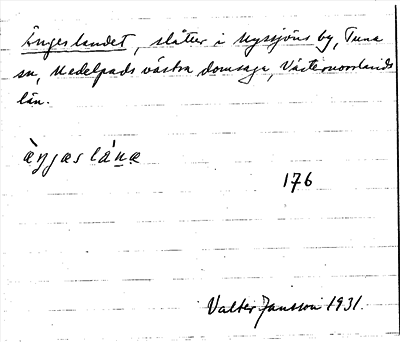 Ängeslandet, slåtter i Nyssjöns by, Tuna
sn, Medelpads västra domsaga, Västernorrlands
län.
æ̀ŋæslánæ
176
Valter Jansson 1931.